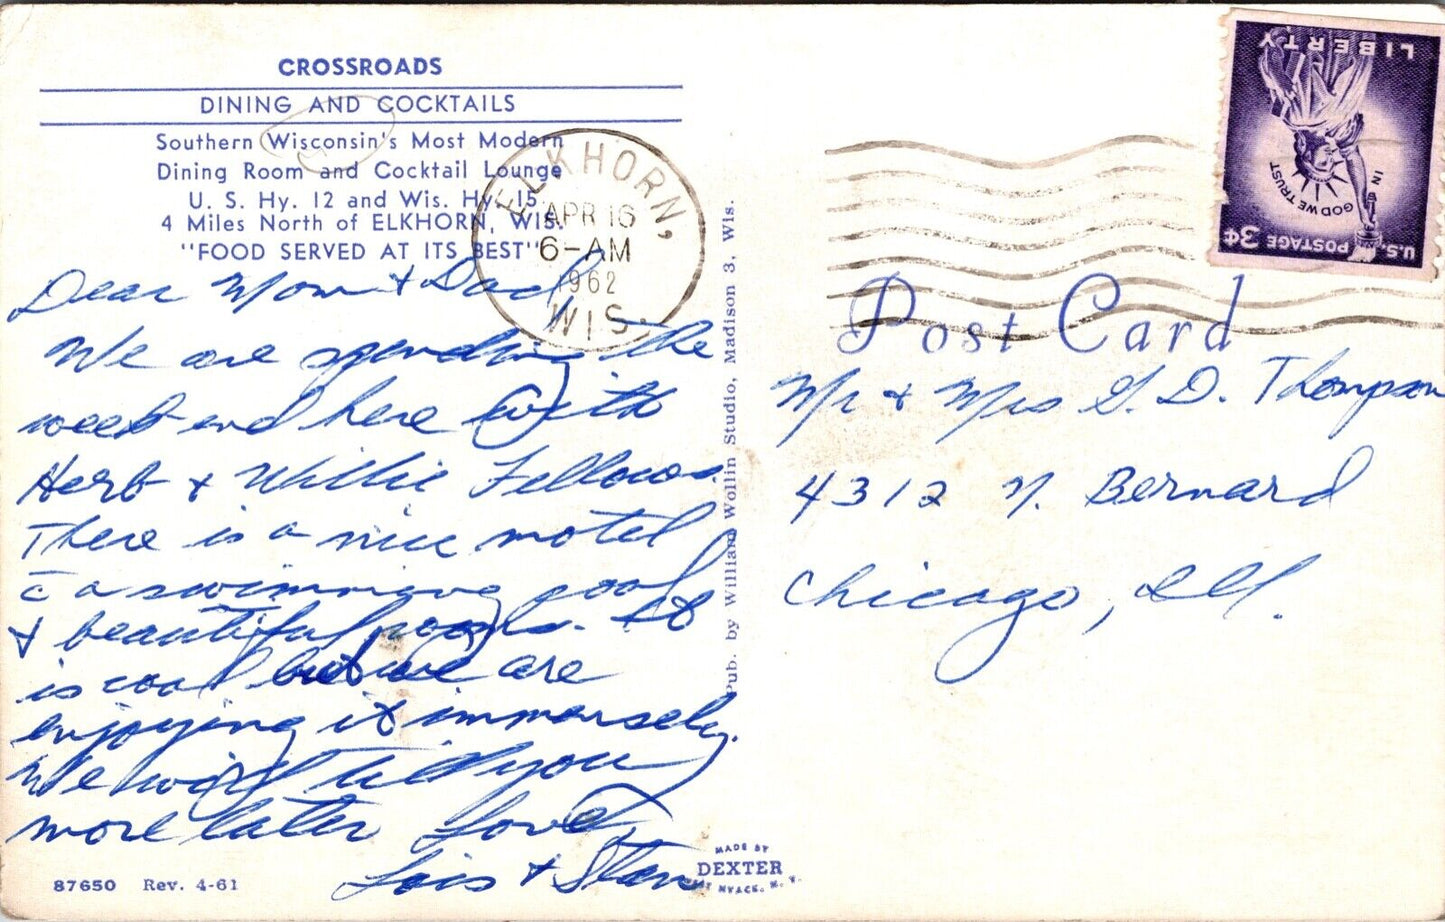 CROSSROADS
DINING AND COCKTAILS
Southern Wisconsin's Most Modern
Dining Room and Cocktail Lounge
U. S. Hy. 12 and Wis. Hy. 15
4 Miles North of ELKHORN, WIS.
"FOOD SERVED AT ITS BEST"
Dear Mom & Dad
We are spending the
week end here with
Herb & Willie Fellows.
There is a nice motel
c̄ a swimming pool
& beautiful rooms. It
is cool but we are
enjoying it immensely.
We will tell you
more later Love,
Lois & Stan
87650 Rev. 4-61
ELKHORN,
APR 16
6-AM
1962
WIS.
Pub. by William Wollin Studio, Madison 3, Wis.
MADE BY
DEXTER
WEST NYACK, N. Y.
LIBERTY
IN GOD WE TRUST
U.S. POSTAGE 3¢
Post Card
Mr & Mrs G. D. Thompson
4312 N. Bernard
Chicago, Ill.